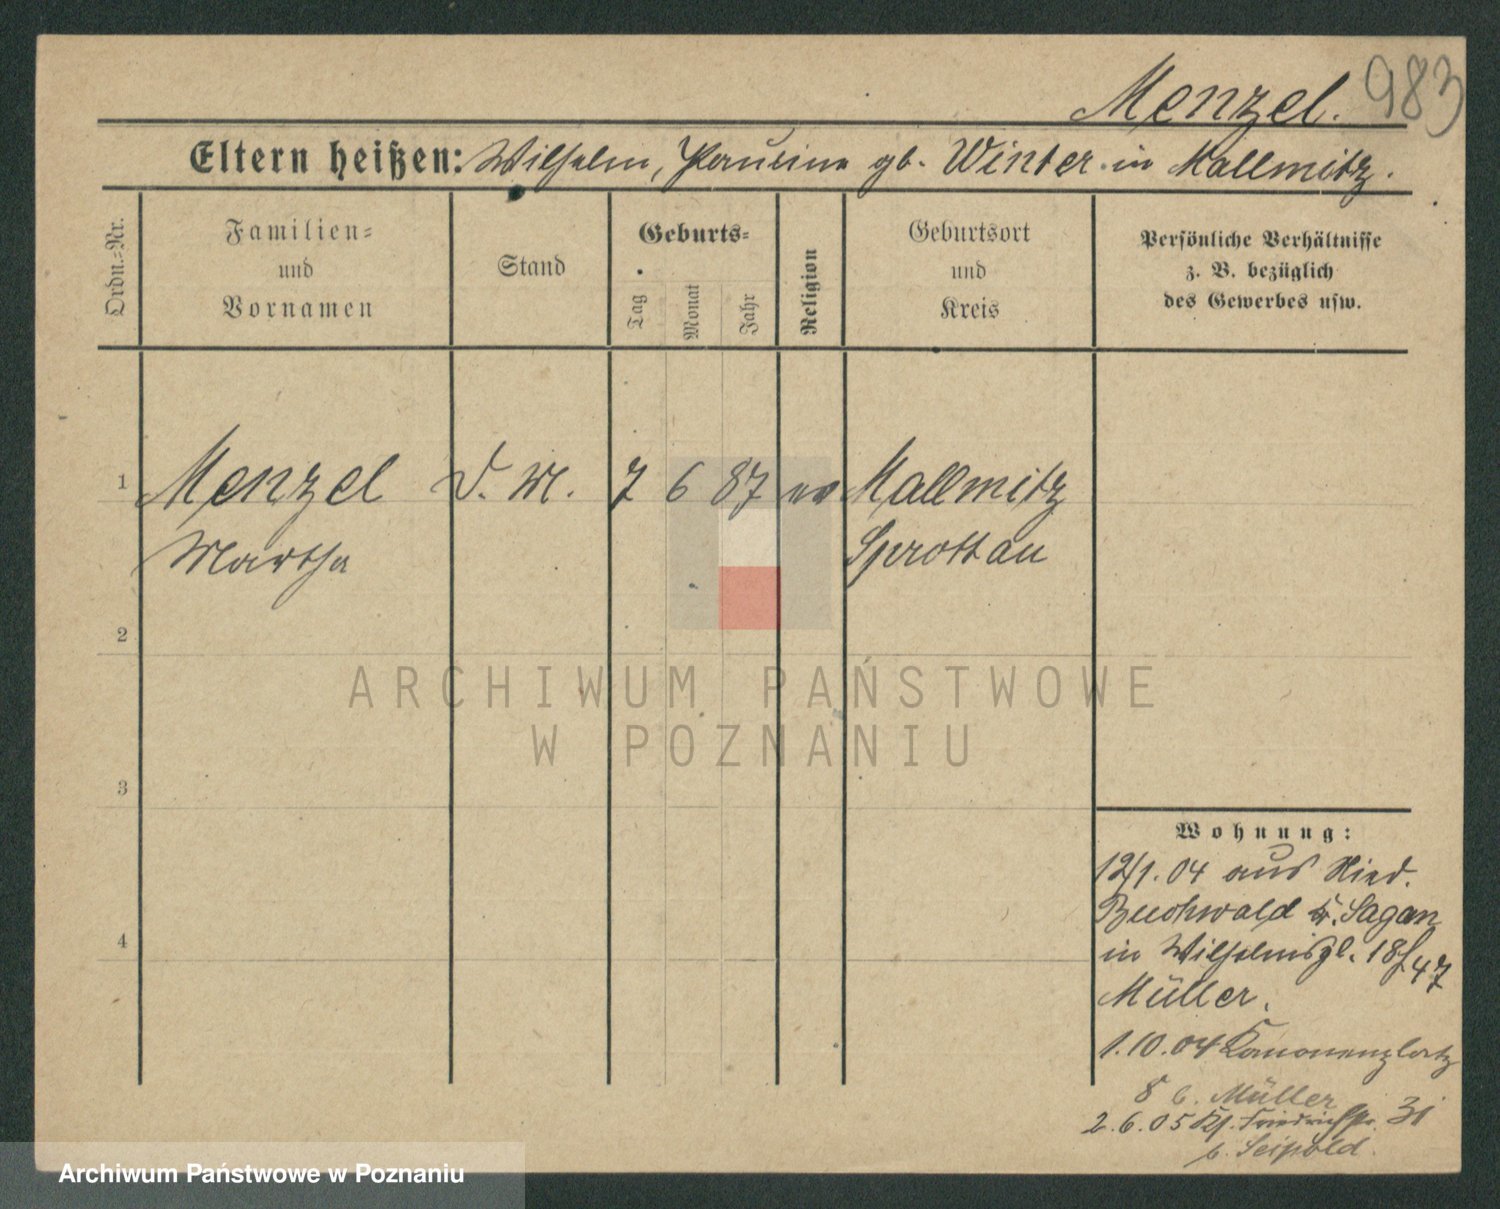 Menzel. 983
Eltern heißen: Wilhelm, Pauline gb. Winter in Mallmitz.
Ordn.-Nr.
Familien-
und
Vornamen
Stand
Geburts-
Tag
Monat
Jahr
Religion
Geburtsort
und
Kreis
Persönliche Verhältnisse
z. B. bezüglich
des Gewerbes usw.
1 Menzel D. M. 7 6 87 ev Mallmitz
Martha Sprottau
2
ARCHIWUM PAŃSTWOWE
W POZNANIU
3
Wohnung:
12/1. 04 aus Nied.
Buchwald Kr. Sagan
4
in Wilhelmspl. 18 47
Müller.
1.10.04 Kanonenplatz
8 b. Müller
2.6.05 Friedrichstr. 31
b. Seipold.
Archiwum Państwowe w Poznaniu